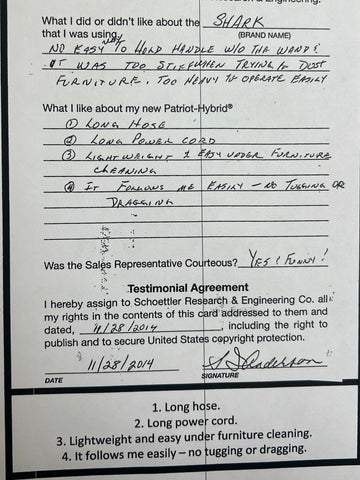 What I did or didn't like about the SHARK
that I was using. (BRAND NAME)
NO EASY WAY TO HOLD HANDLE W/O THE WAND &
IT WAS TOO STIFF WHEN TRYING TO DUST
FURNITURE. TOO HEAVY TO OPERATE EASILY
What I like about my new Patriot-Hybrid®
① LONG HOSE
② LONG POWER CORD
③ LIGHTWEIGHT & EASY UNDER FURNITURE
CLEANING
④ IT FOLLOWS ME EASILY – NO TUGGING OR
DRAGGING
Was the Sales Representative Courteous? YES & FUNNY!
Testimonial Agreement
I hereby assign to Schoettler Research & Engineering Co. all
my rights in the contents of this card addressed to them and
dated, 11/28/2014, including the right to
publish and to secure United States copyright protection.
11/28/2014 Anderson
DATE SIGNATURE
1. Long hose.
2. Long power cord.
3. Lightweight and easy under furniture cleaning.
4. It follows me easily – no tugging or dragging.